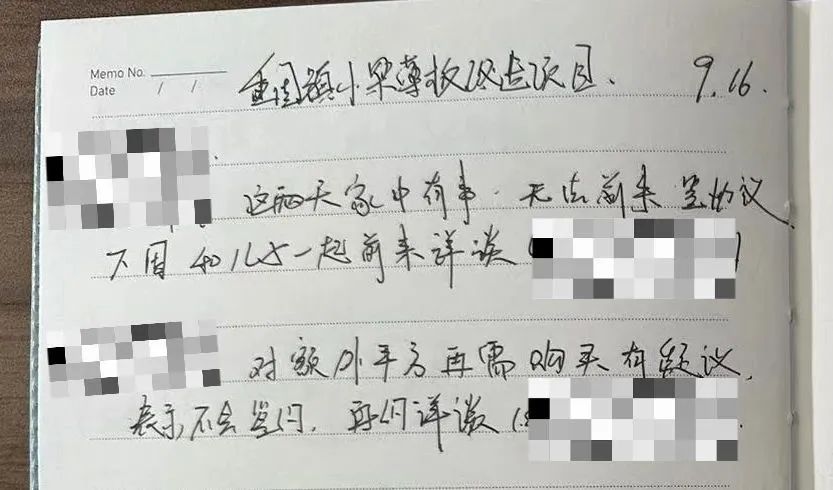 Memo No.
Date / /
重固镇小梁薄板改造项目. 9.16.
这两天家中有事. 无法前来签协议,
下周和儿女一起前来详谈 ( )
对额外平方再需购买有疑议,
表示不会签约. 再约详谈 (